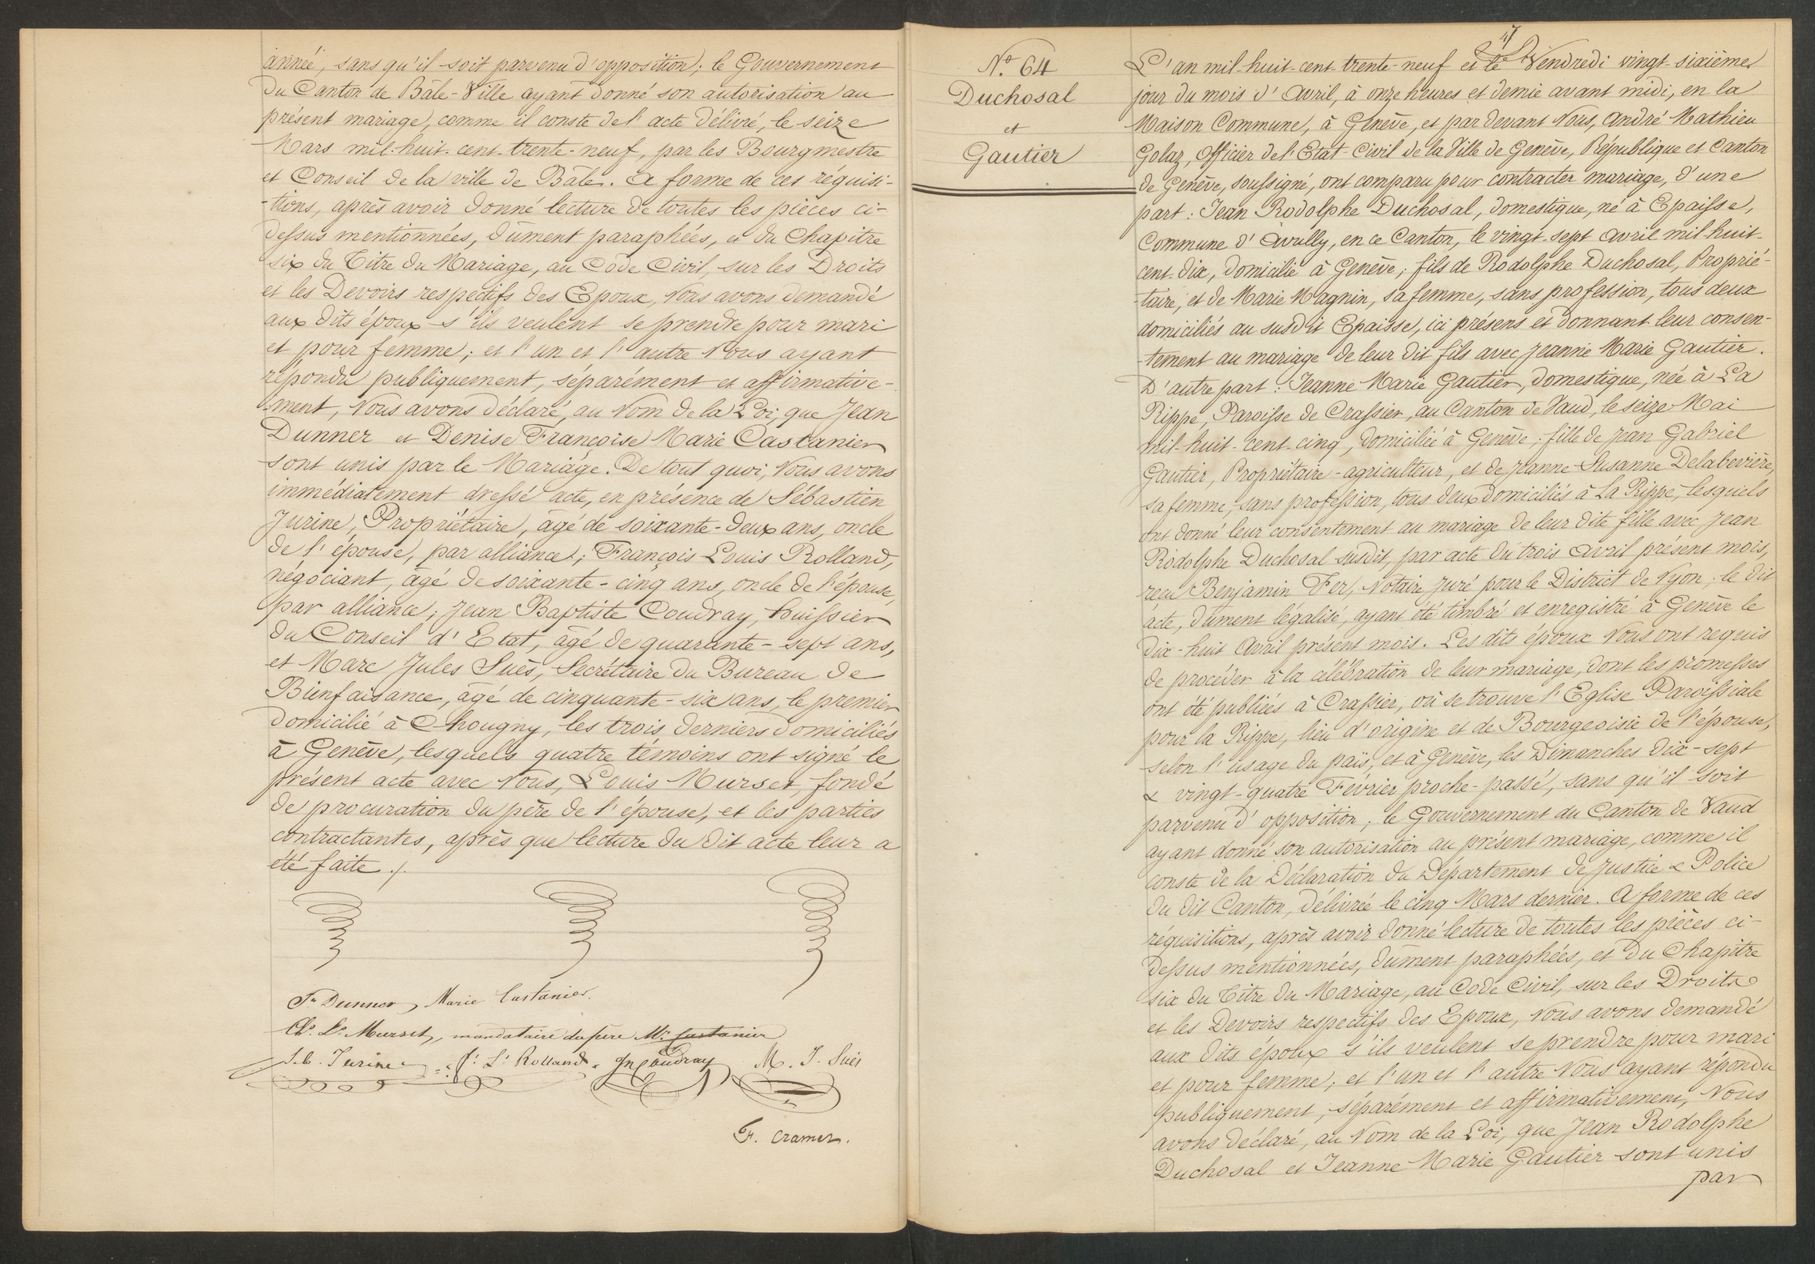 année, sans qu'il soit parvenu d'opposition; le Gouvernement
du Canton de Bâle-Ville ayant donné son autorisation au
présent mariage, comme il conste de l'acte délivré, le seize
Mars mil-huit-cent-trente-neuf, par les Bourgmestre
et Conseil de la ville de Bâle. A forme de ces réquisi-
-tions, après avoir donné lecture de toutes les pièces ci-
dessus mentionnées, dûment paraphées, et du Chapitre
six du Titre du Mariage, au Code Civil, sur les Droits
et les Devoirs respectifs des Epoux, Nous avons demandé
aux dits époux s'ils veulent se prendre pour mari
et pour femme; et l'un et l'autre Nous ayant
répondu publiquement, séparément et affirmative-
-ment, Nous avons déclaré, au Nom de la Loi, que Jean
Dunner et Denise Françoise Marie Castanier
sont unis par le Mariage. De tout quoi, Nous avons
immédiatement dressé acte, en présence de Sébastien
Jurine, Propriétaire, âgé de soixante-deux ans, oncle
de l'épouse, par alliance; François Louis Rolland,
négociant, âgé de soixante-cinq ans, oncle de l'épouse,
par alliance; Jean Baptiste Coudray, huissier
du Conseil d'Etat, âgé de quarante-sept ans,
et Marc Jules Suès, Secrétaire du Bureau de
Bienfaisance, âgé de cinquante-six ans, le premier
domicilié à Chougny, les trois derniers domiciliés
à Genève, lesquels quatre témoins ont signé le
présent acte avec Nous, Louis Murset, fondé
de procuration du père de l'épouse, et les parties
contractantes, après que lecture du dit acte leur a
été faite ./.
Jn Dunner, Marie Castanier.
Ch. Ls. Murset, mandataire du père Mr. Castanier
S.b. Jurine F: Ls Rolland. Jn Coudray M. J. Suès
Fr. Cramer.
No. 64
Duchosal
et
Gautier
47
L'an mil-huit-cent-trente-neuf et le Vendredi vingt-sixième
jour du mois d'Avril, à onze heures et demie avant midi, en la
Maison Commune, à Genève, et par devant Nous, André Mathieu
Golaz, Officier de l'Etat Civil de la Ville de Genève, République et Canton
de Genève, soussigné, ont comparu pour contracter mariage, d'une
part: Jean Rodolphe Duchosal, domestique, né à Epaisse,
Commune d'Avully, en ce Canton, le vingt-sept Avril mil-huit-
cent-dix, domicilié à Genève; fils de Rodolphe Duchosal, Proprié-
-taire, et de Marie Magnin, sa femme, sans profession, tous deux
domiciliés au susdit Epaisse, ici présens et donnant leur consen-
-tement au mariage de leur dit fils avec Jeanne Marie Gautier.
D'autre part: Jeanne Marie Gautier, domestique, née à La
Rippe, Paroisse de Crassier, au Canton de Vaud, le seize Mai
mil-huit-cent-cinq, domiciliée à Genève; fille de Jean Gabriel
Gautier, Propriétaire-agriculteur, et de Jeanne Susanne Delabevière,
sa femme, sans profession, tous deux domiciliés à La Rippe, lesquels
ont donné leur consentement au mariage de leur dite fille avec Jean
Rodolphe Duchosal susdit, par acte du trois Avril présent mois,
reçu Benjamin Fer, Notaire juré pour le District de Nyon; le dit
acte, dûment légalisé, ayant été timbré et enregistré à Genève le
dix-huit Avril présent mois. Les dits époux Nous ont requis
de procéder à la célébration de leur mariage, dont les promesses
ont été publiées à Crassier, où se trouve l'Eglise Paroissiale
pour la Rippe, lieu d'origine et de Bourgeoisie de l'épouse,
selon l'usage du païs, et à Genève, les Dimanches dix-sept
& vingt-quatre Février proche-passé, sans qu'il soit
parvenu d'opposition; le Gouvernement du Canton de Vaud
ayant donné son autorisation au présent mariage, comme il
conste de la Déclaration du Département de Justice & Police
du dit Canton, délivrée le cinq Mars dernier. A forme de ces
réquisitions, après avoir donné lecture de toutes les pièces ci-
dessus mentionnées, dûment paraphées, et du Chapitre
six du Titre du Mariage, au Code Civil, sur les Droits
et les Devoirs respectifs des Epoux, Nous avons demandé
aux dits époux s'ils veulent se prendre pour mari
et pour femme; et l'un et l'autre Nous ayant répondu
publiquement, séparément et affirmativement, Nous
avons déclaré, au Nom de la Loi, que Jean Rodolphe
Duchosal et Jeanne Marie Gautier sont unis
par